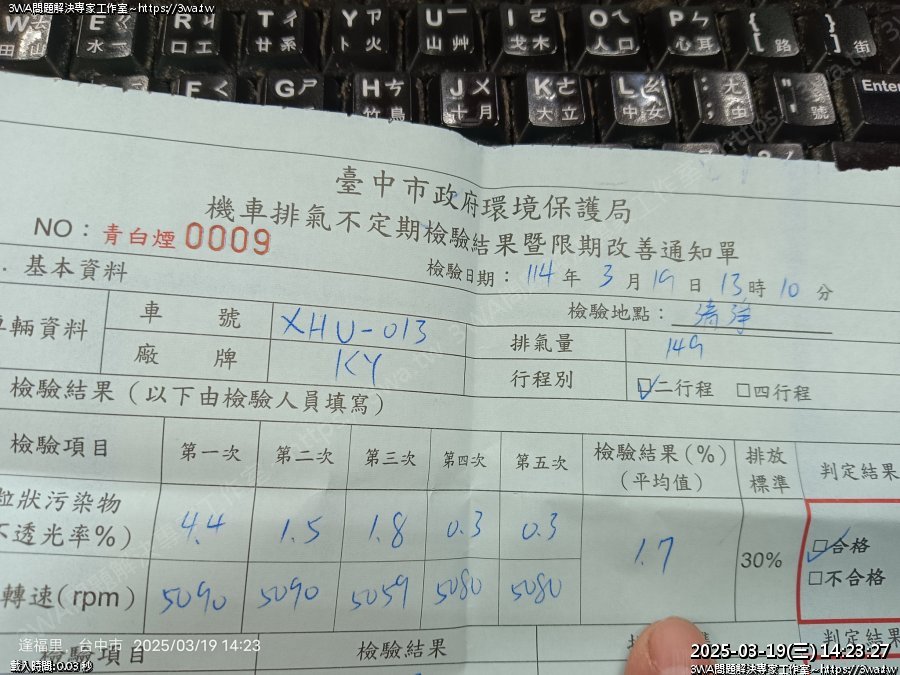 3WA問題解決專家工作室~https://3wa.tw
W 田
E 水
R ㄐ 口 工
T ㄔ 廿 系
Y ㄗ 卜 火
U ㄧ 山 艸
I ㄛ 戈 木
O ㄟ 人 口
P ㄣ 心 耳
{ [ 路
} ] 街
F ㄑ
G ㄕ
H ㄘ 竹 鳥
J ㄨ 十 月
K ㄜ 大 立
L ㄠ 中 女
: ; ㄤ 虫
" ' 號
Enter
臺中市政府環境保護局
機車排氣不定期檢驗結果暨限期改善通知單
NO：青白煙 0009
檢驗日期：114 年 3 月 19 日 13 時 10 分
. 基本資料
檢驗地點：清淨
車輛資料 車號 XHU-013 排氣量 149
廠牌 KY 行程別 ☑二行程 □四行程
檢驗結果（以下由檢驗人員填寫）
檢驗項目 第一次 第二次 第三次 第四次 第五次 檢驗結果(%)（平均值） 排放標準 判定結果
粒狀污染物
不透光率%) 4.4 1.5 1.8 0.3 0.3 1.7 30% ☑合格
□不合格
轉速(rpm) 5090 5090 5059 5080 5080
檢驗項目 檢驗結果 判定結果
逢福里，台中市 2025/03/19 14:23
載入時間:0.03 秒
2025-03-19(三) 14:23:27
3WA問題解決專家工作室~https://3wa.tw